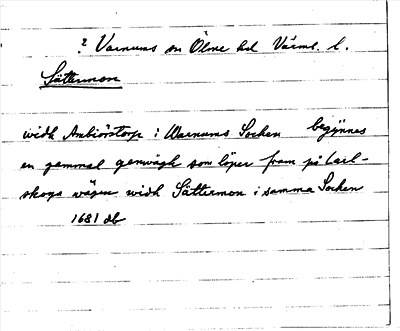 ? Varnums sn Ölme hd Värml. l.
Sättermon
widh Anbiörstorp i Warnums Socken begynnes
en gammal genwägh som löper fram på Carl-
skoga wägen widh Sättermon i samma Socken
1681 db